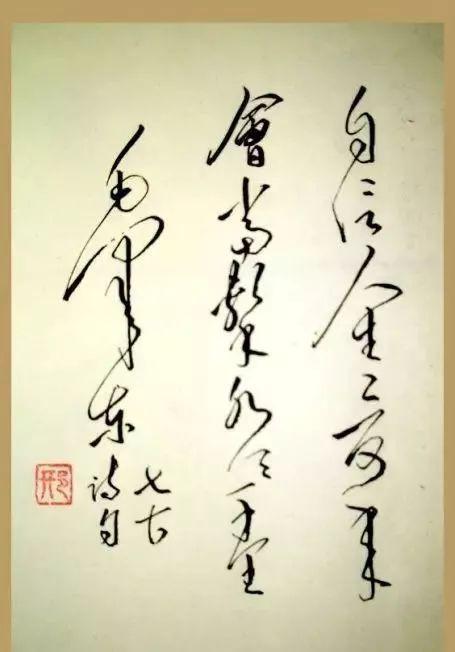 自信人生二百年
會當擊水三千里
毛泽东
七古
诗句
邢